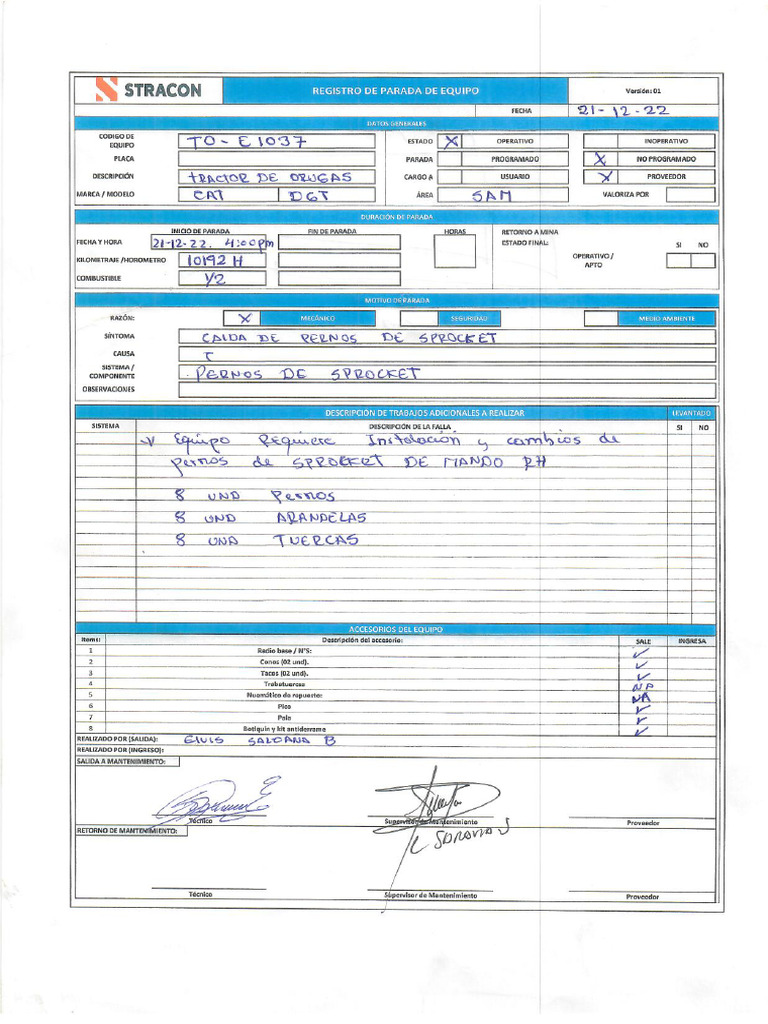 STRACON
REGISTRO DE PARADA DE EQUIPO
Versión: 01
FECHA 21-12-22
DATOS GENERALES
CODIGO DE EQUIPO TO-E1037 ESTADO X OPERATIVO INOPERATIVO
PLACA PARADA PROGRAMADO X NO PROGRAMADO
DESCRIPCIÓN TRACTOR DE ORUGAS CARGO A USUARIO X PROVEEDOR
MARCA / MODELO CAT D6T ÁREA SAM VALORIZA POR
DURACIÓN DE PARADA
INICIO DE PARADA FIN DE PARADA HORAS RETORNO A MINA
FECHA Y HORA 21-12-22. 4:00pm ESTADO FINAL: SI NO
KILOMETRAJE /HOROMETRO 10192 H OPERATIVO / APTO
COMBUSTIBLE 1/2
MOTIVO DE PARADA
RAZÓN: X MECÁNICO SEGURIDAD MEDIO AMBIENTE
SÍNTOMA CAIDA DE PERNOS DE SPROCKET
CAUSA
SISTEMA / COMPONENTE PERNOS DE SPROCKET
OBSERVACIONES
DESCRIPCIÓN DE TRABAJOS ADICIONALES A REALIZAR LEVANTADO
SISTEMA DESCRIPCIÓN DE LA FALLA SI NO
Equipo Requiere Instalación y cambios de
pernos de SPROCKET DE MANDO RH
8 UND Pernos
8 UND ARANDELAS
8 UND TUERCAS
ACCESORIOS DEL EQUIPO
Items: Descripción del accesorio: SALE INGRESA
1 Radio base / N°S: ✓
2 Conos (02 und). ✓
3 Tacos (02 und). ✓
4 Trabatuercas NA
5 Nuemático de repuesto: NA
6 Pico ✓
7 Pala ✓
8 Botiquín y kit antiderrame ✓
REALIZADO POR (SALIDA): Elvis SALDAÑA B
REALIZADO POR (INGRESO):
SALIDA A MANTENIMIENTO:
Técnico Supervisor de Mantenimiento Proveedor
RETORNO DE MANTENIMIENTO:
Técnico Supervisor de Mantenimiento Proveedor